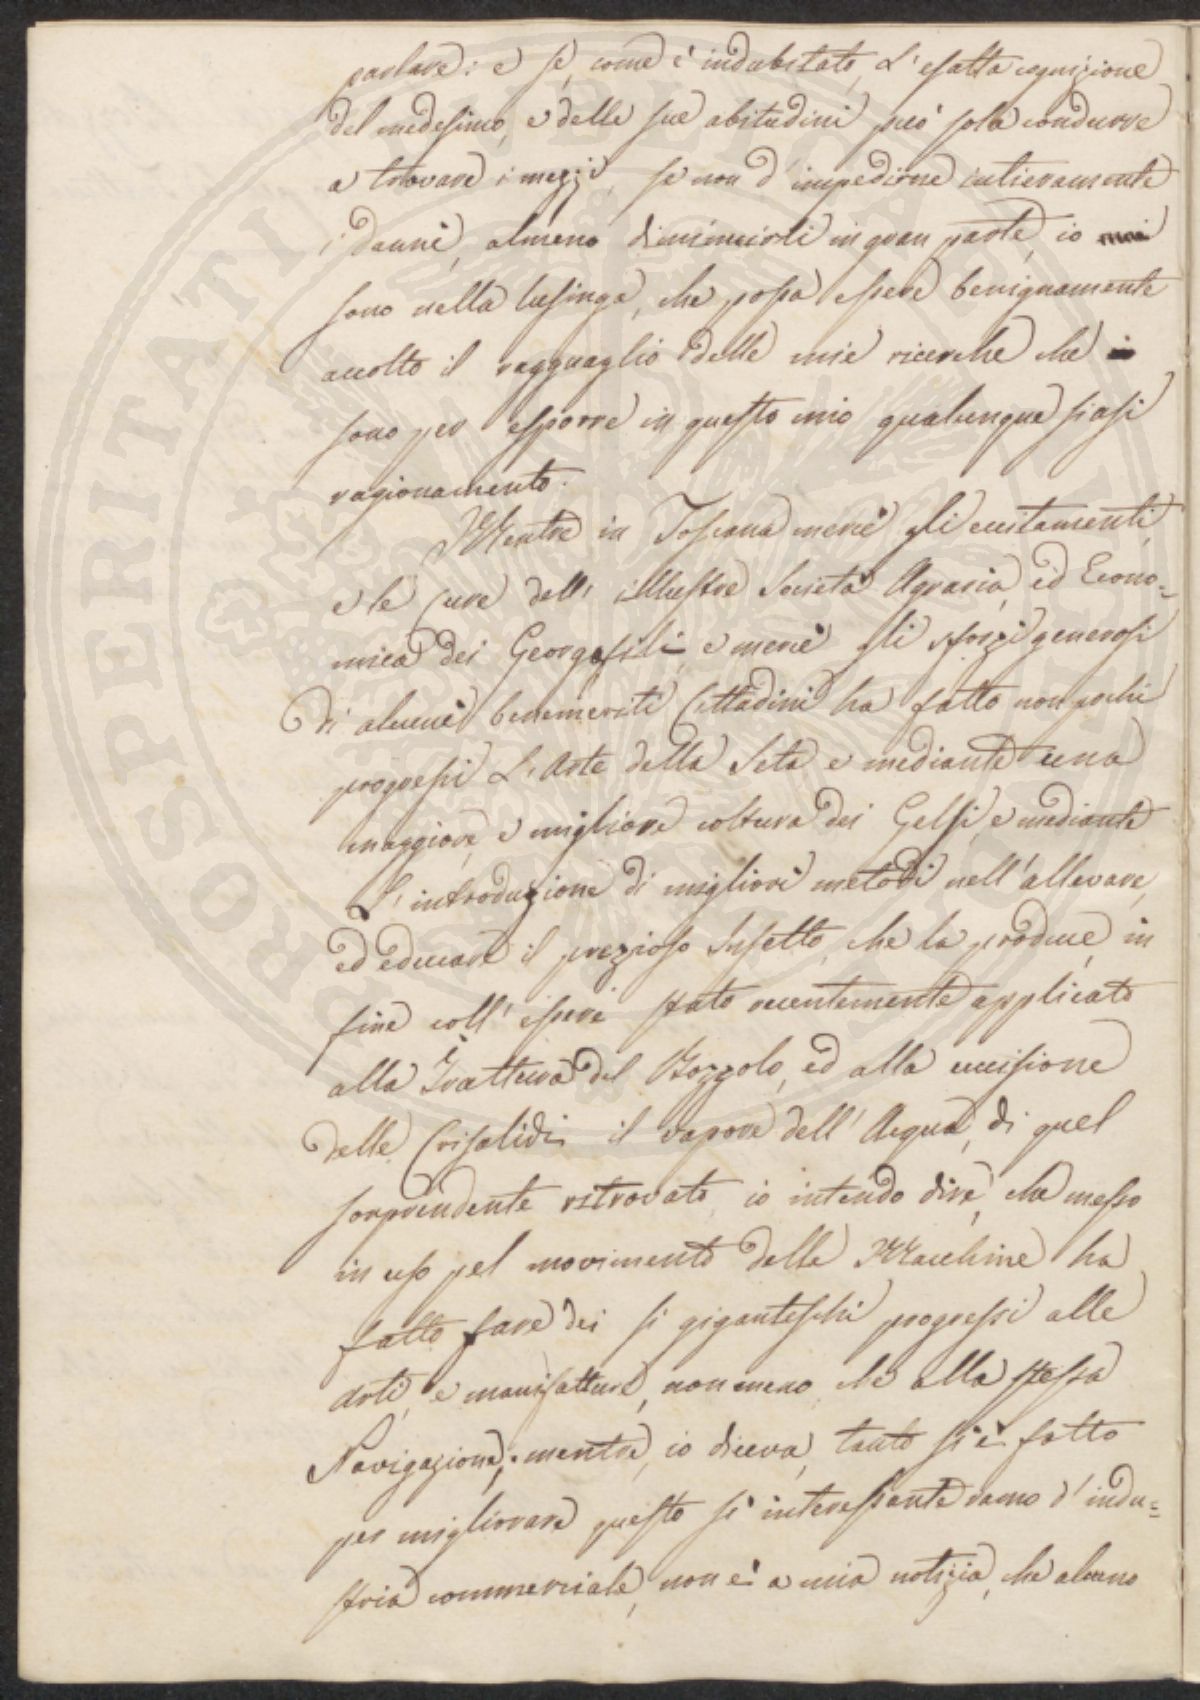 parlare: e se, come è indubitato, l'esatta cognizione
del medesimo, e delle sue abitudini può sola condurre
a trovare i mezzi, se non d'impedirne intieramente
i danni, almeno diminuirli in gran parte, io
sono nella lusinga, che possa essere benignamente
accolto il ragguaglio delle mie ricerche che
sono per esporre in questo mio qualunque siasi
ragionamento.
Mentre in Toscana mercè gli eccitamenti,
e le cure dell' illustre Società Agraria, ed Econo=
mica dei Georgofili, e mercè gli sforzi generosi
di alcuni benemeriti Cittadini ha fatto non pochi
progressi L'Arte della Seta e mediante una
maggiore, e migliore coltura dei Gelsi, e mediante
L'introduzione di migliori metodi nell'allevare,
ed educare il prezioso Insetto, che la produce, in
fine coll' essere stato recentemente applicato
alla Trattura del Bozzolo, ed alla uccisione
delle Crisalidi il vapore dell'Acqua, di quel
sorprendente ritrovato io intendo dire, che messo
in uso pel movimento delle Macchine ha
fatto fare dei sì giganteschi progressi alle
Arti, e manifatture, non meno che alla stessa
Navigazione; mentre, io diceva, tanto si è fatto
per migliorare questo sì interessante ramo d'indu=
stria commerciale, non è a mia notizia, che alcuno
PROSPERITATI PUBLICAE